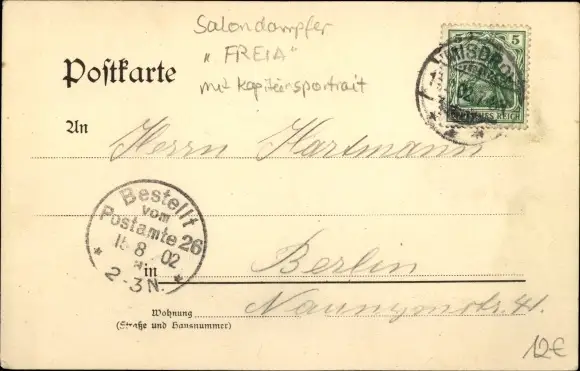 Salondampfer
„FREIA“
mit Kapitänsportrait
Postkarte
5
MISDROY
DEUTSCHES REICH
An
Herrn Hartmann
Bestellt
vom
Postamte 26
8 02
2-3N.
in
Berlin
Wohnung
(Straße und Hausnummer)
Naunynstr. 41.
12€